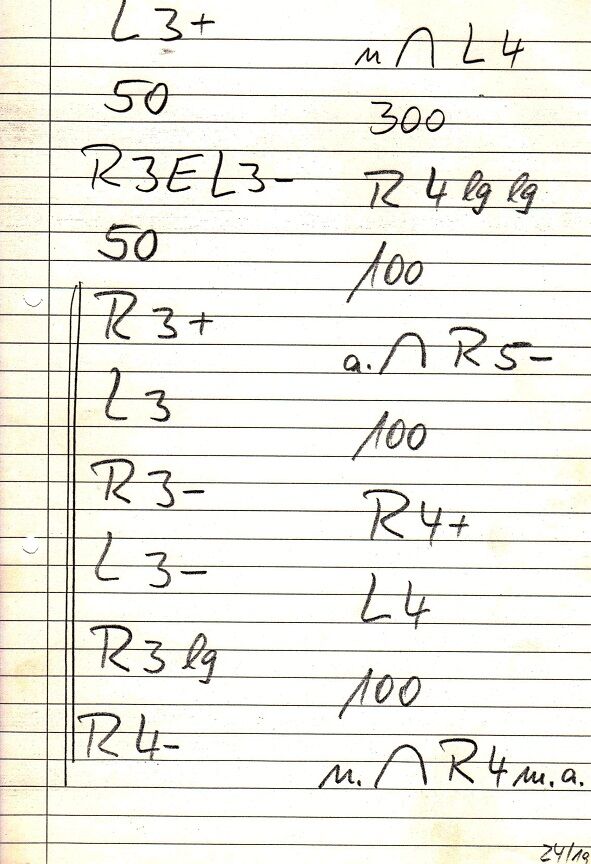 L 3+
50
R3EL3-
50
R 3+
L 3
R 3-
L 3-
R 3 lg
R 4-
n ∩ L 4
300
R 4 lg lg
100
a. ∩ R 5-
100
R 4+
L 4
100
n. ∩ R 4 m. a.
24/19